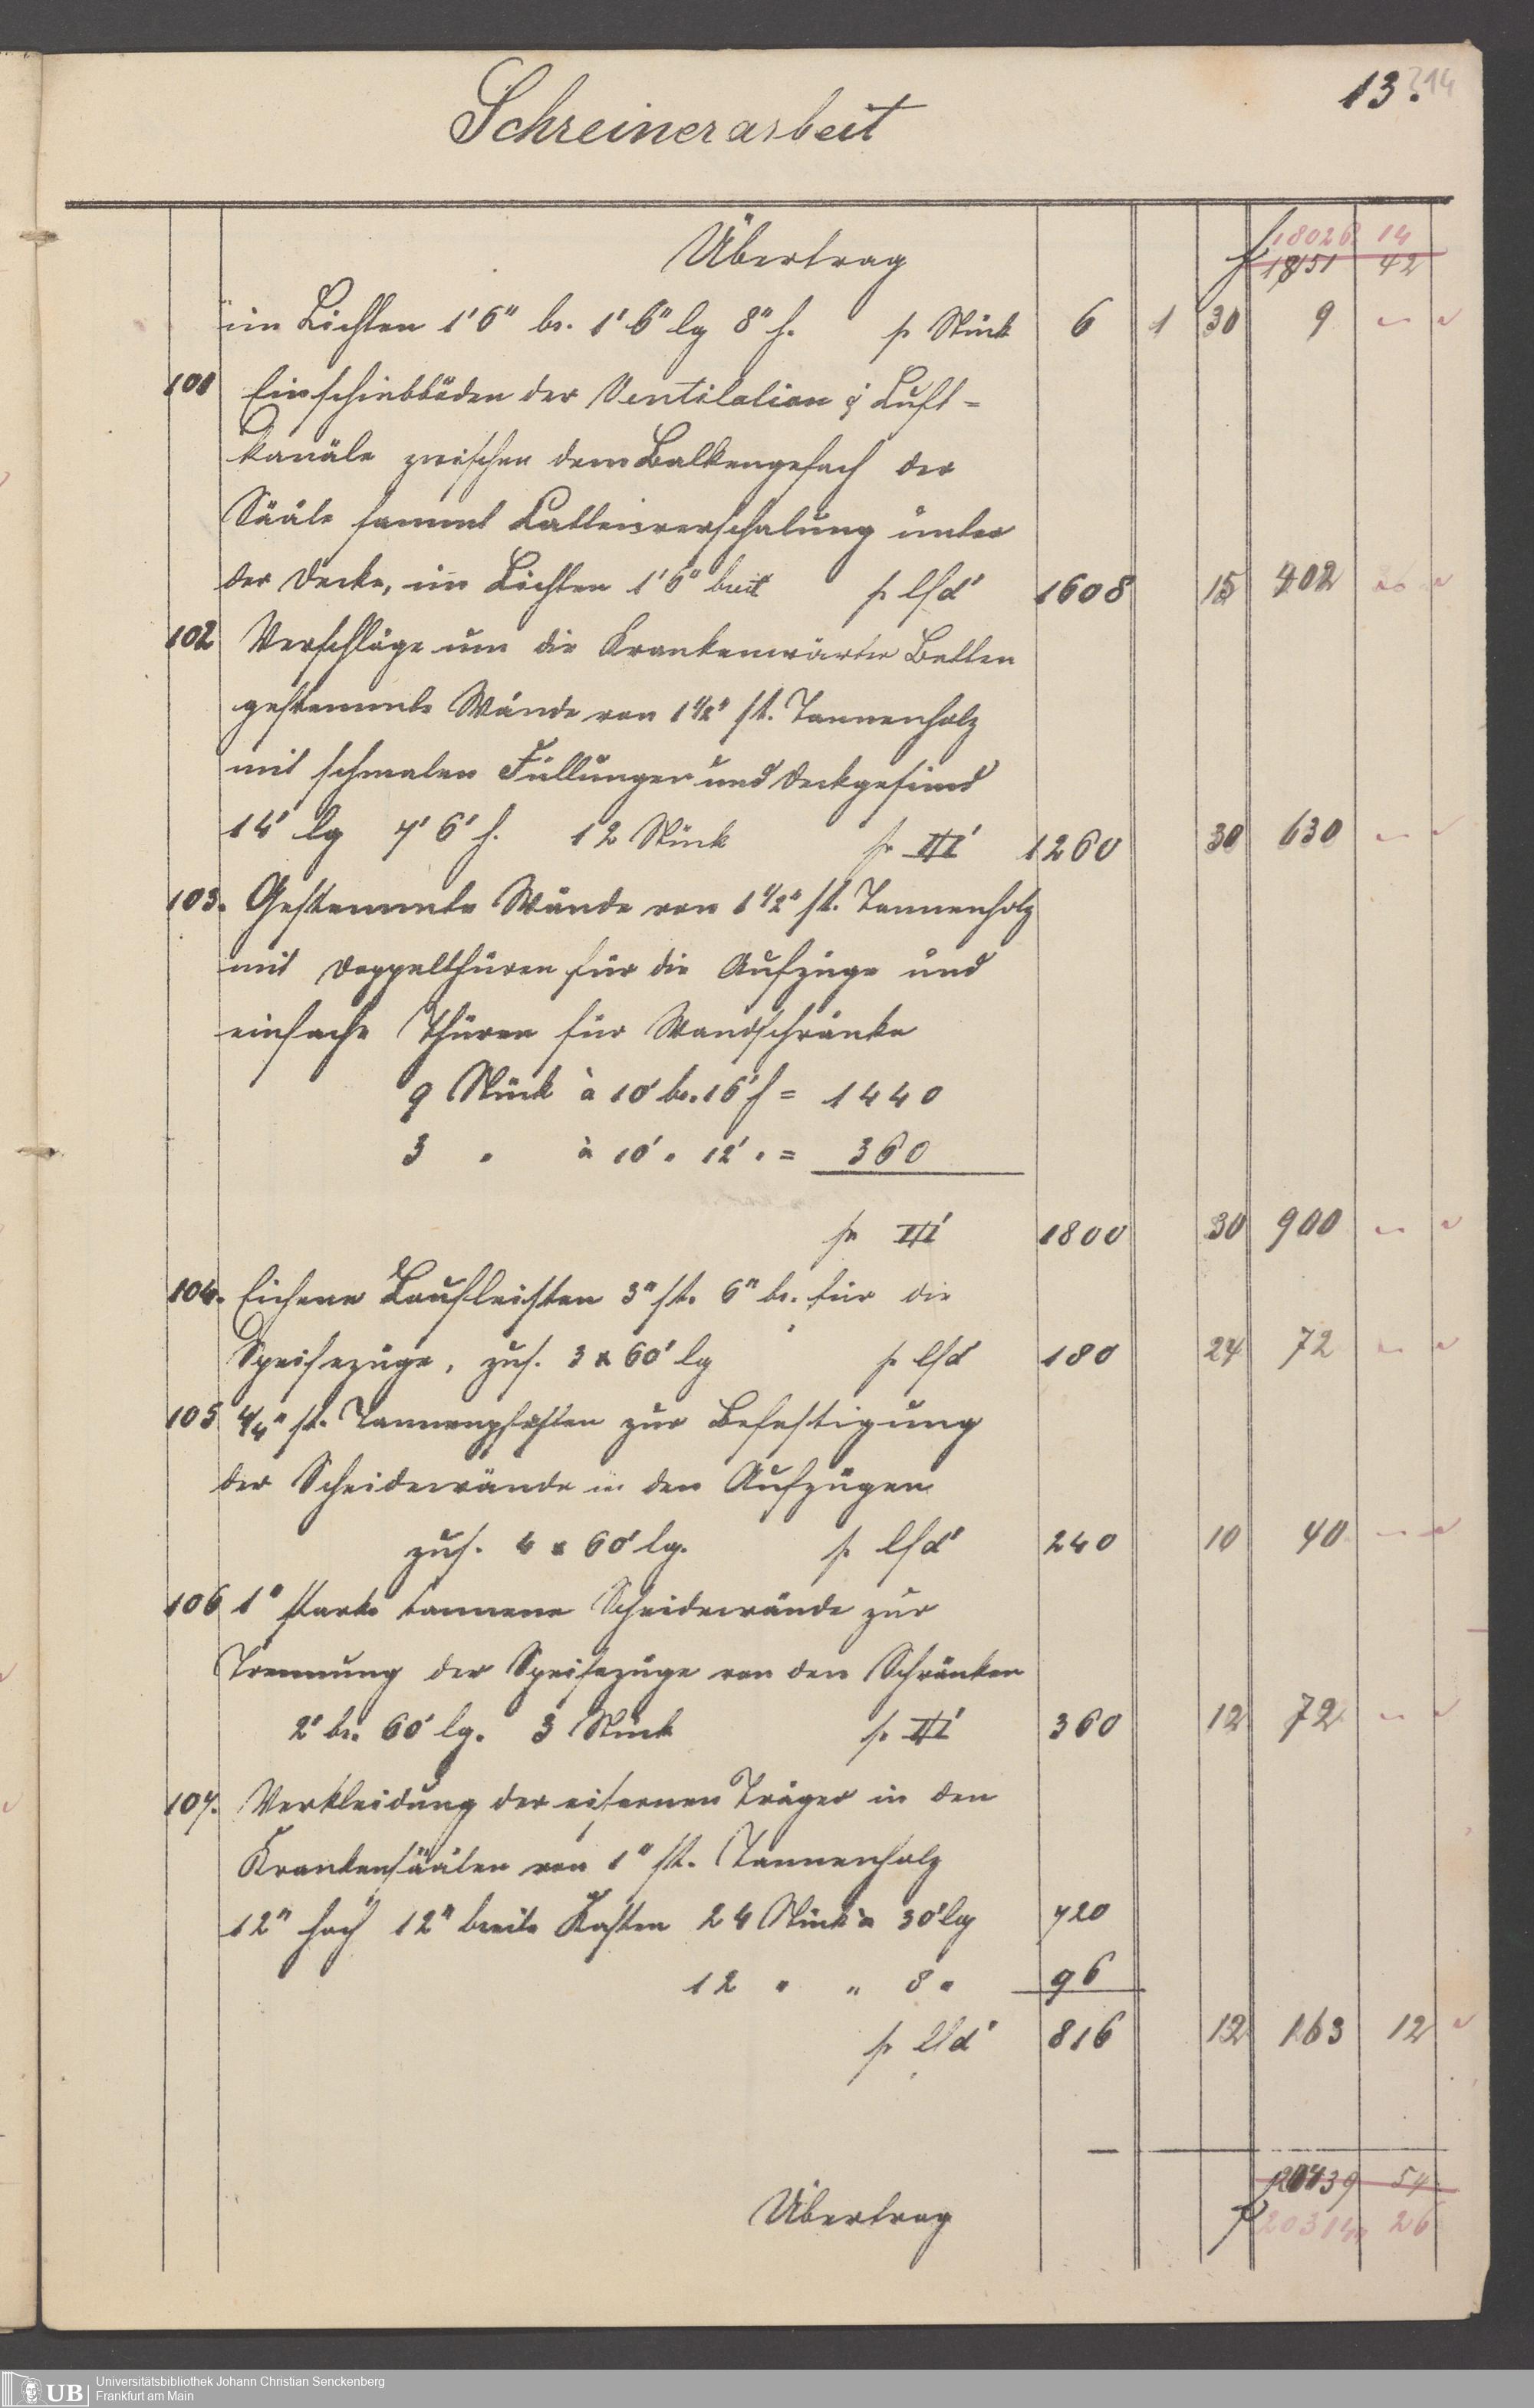 13. 214
Schreinerarbeit
18026 14
Übertrag f 18151 42
im Lichten 1'6" br. 1'6" lg 8" h. p Stück 6 1 30 9 –
101 Einschiebböden der Ventilation & Luft=
kanäle zwischen dem Balkengefach der
Sääle sammt Lattenverschalung unter
der Decke, im Lichten 1'6" breit p lfd' 1608 15 402 –
102 Verschläge um die Krankenwärter Betten
gestemmte Wände von 1 1/2" st. Tannenholz
mit schmalen Füllungen und Deckgesims
14' lg 7'6' h. 12 Stück p □' 1260 30 630 –
103. Gestemmte Wände von 1 1/2" st. Tannenholz
mit Doppelthüren für die Aufzüge und
einfache Thüren für Wandschränke
9 Stück à 10' br. 16' h = 1440
3 " à 10' " 12' " = 360
p □' 1800 30 900 –
104. Eichene Laufleisten 3" st. 6" br. für die
Speisezüge, zus. 3 x 60' lg p lfd 180 24 72 –
105 4/4" st. Tannenpfosten zur Befestigung
der Scheidewände in den Aufzügen
zus. 4 x 60' lg. p lfd' 240 10 40 –
106 1" starke tannene Scheidewände zur
Trennung der Speisezüge von den Schränken
2' br. 60' lg. 3 Stück p □' 360 12 72 –
107. Verkleidung der eisernen Träger in den
Krankensäälen von 1" st. Tannenholz
12" hoch 12" breite Kasten 24 Stück à 30' lg 720
12 " " 8 " 96
p lfd' 816 12 163 12
20439 54
Übertrag f 20314 26
UB Universitätsbibliothek Johann Christian Senckenberg
Frankfurt am Main